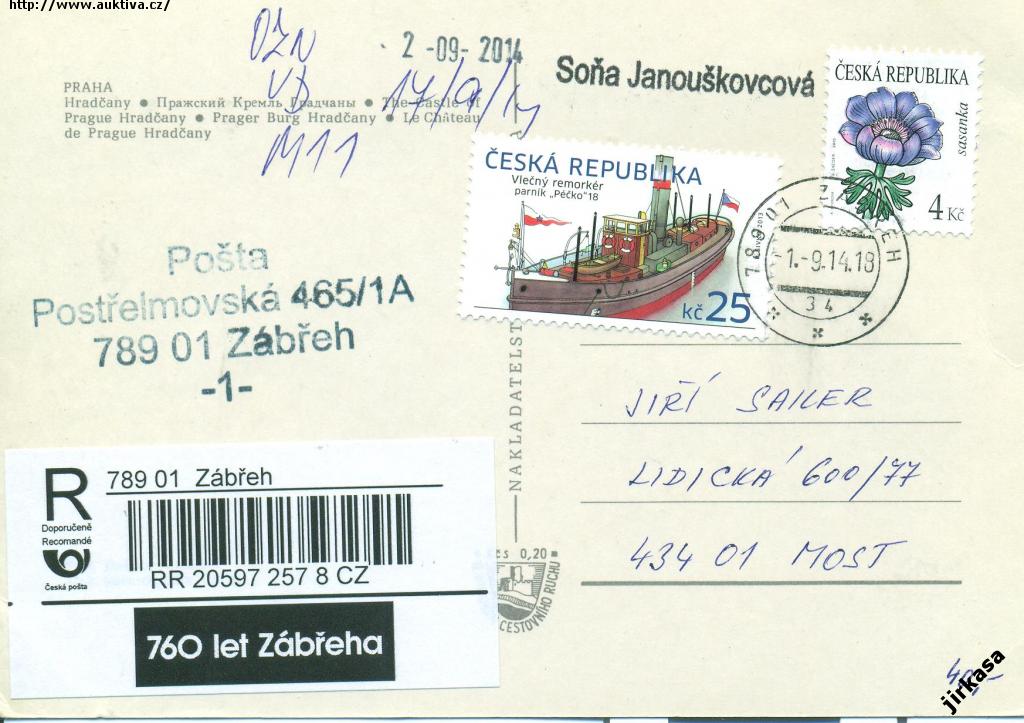 http://www.auktiva.cz/
PRAHA
Hradčany ● Пражский Кремль Градчаны ● The Castle of
Prague Hradčany ● Prager Burg Hradčany ● Le Château
de Prague Hradčany
OZN
VB 17/9/14
M11
2 -09- 2014
Soňa Janouškovcová
ČESKÁ REPUBLIKA
sasanka
4 Kč
ČESKÁ REPUBLIKA
Vlečný remorkér
parník „Péčko“ 18
2013
kč 25
789 01 ZÁBŘEH
1.-9.14.18
34
Pošta
Postřelmovská 465/1A
789 01 Zábřeh
-1-
NAKLADATELST
JIŘÍ SAILER
LIDICKÁ 600/77
434 01 MOST
R
Doporučeně
Recomandé
Česká pošta
789 01 Zábřeh
RR 20597 257 8 CZ
760 let Zábřeha
Kčs 0,20
CESTOVNÍHO RUCHU
jirkasa